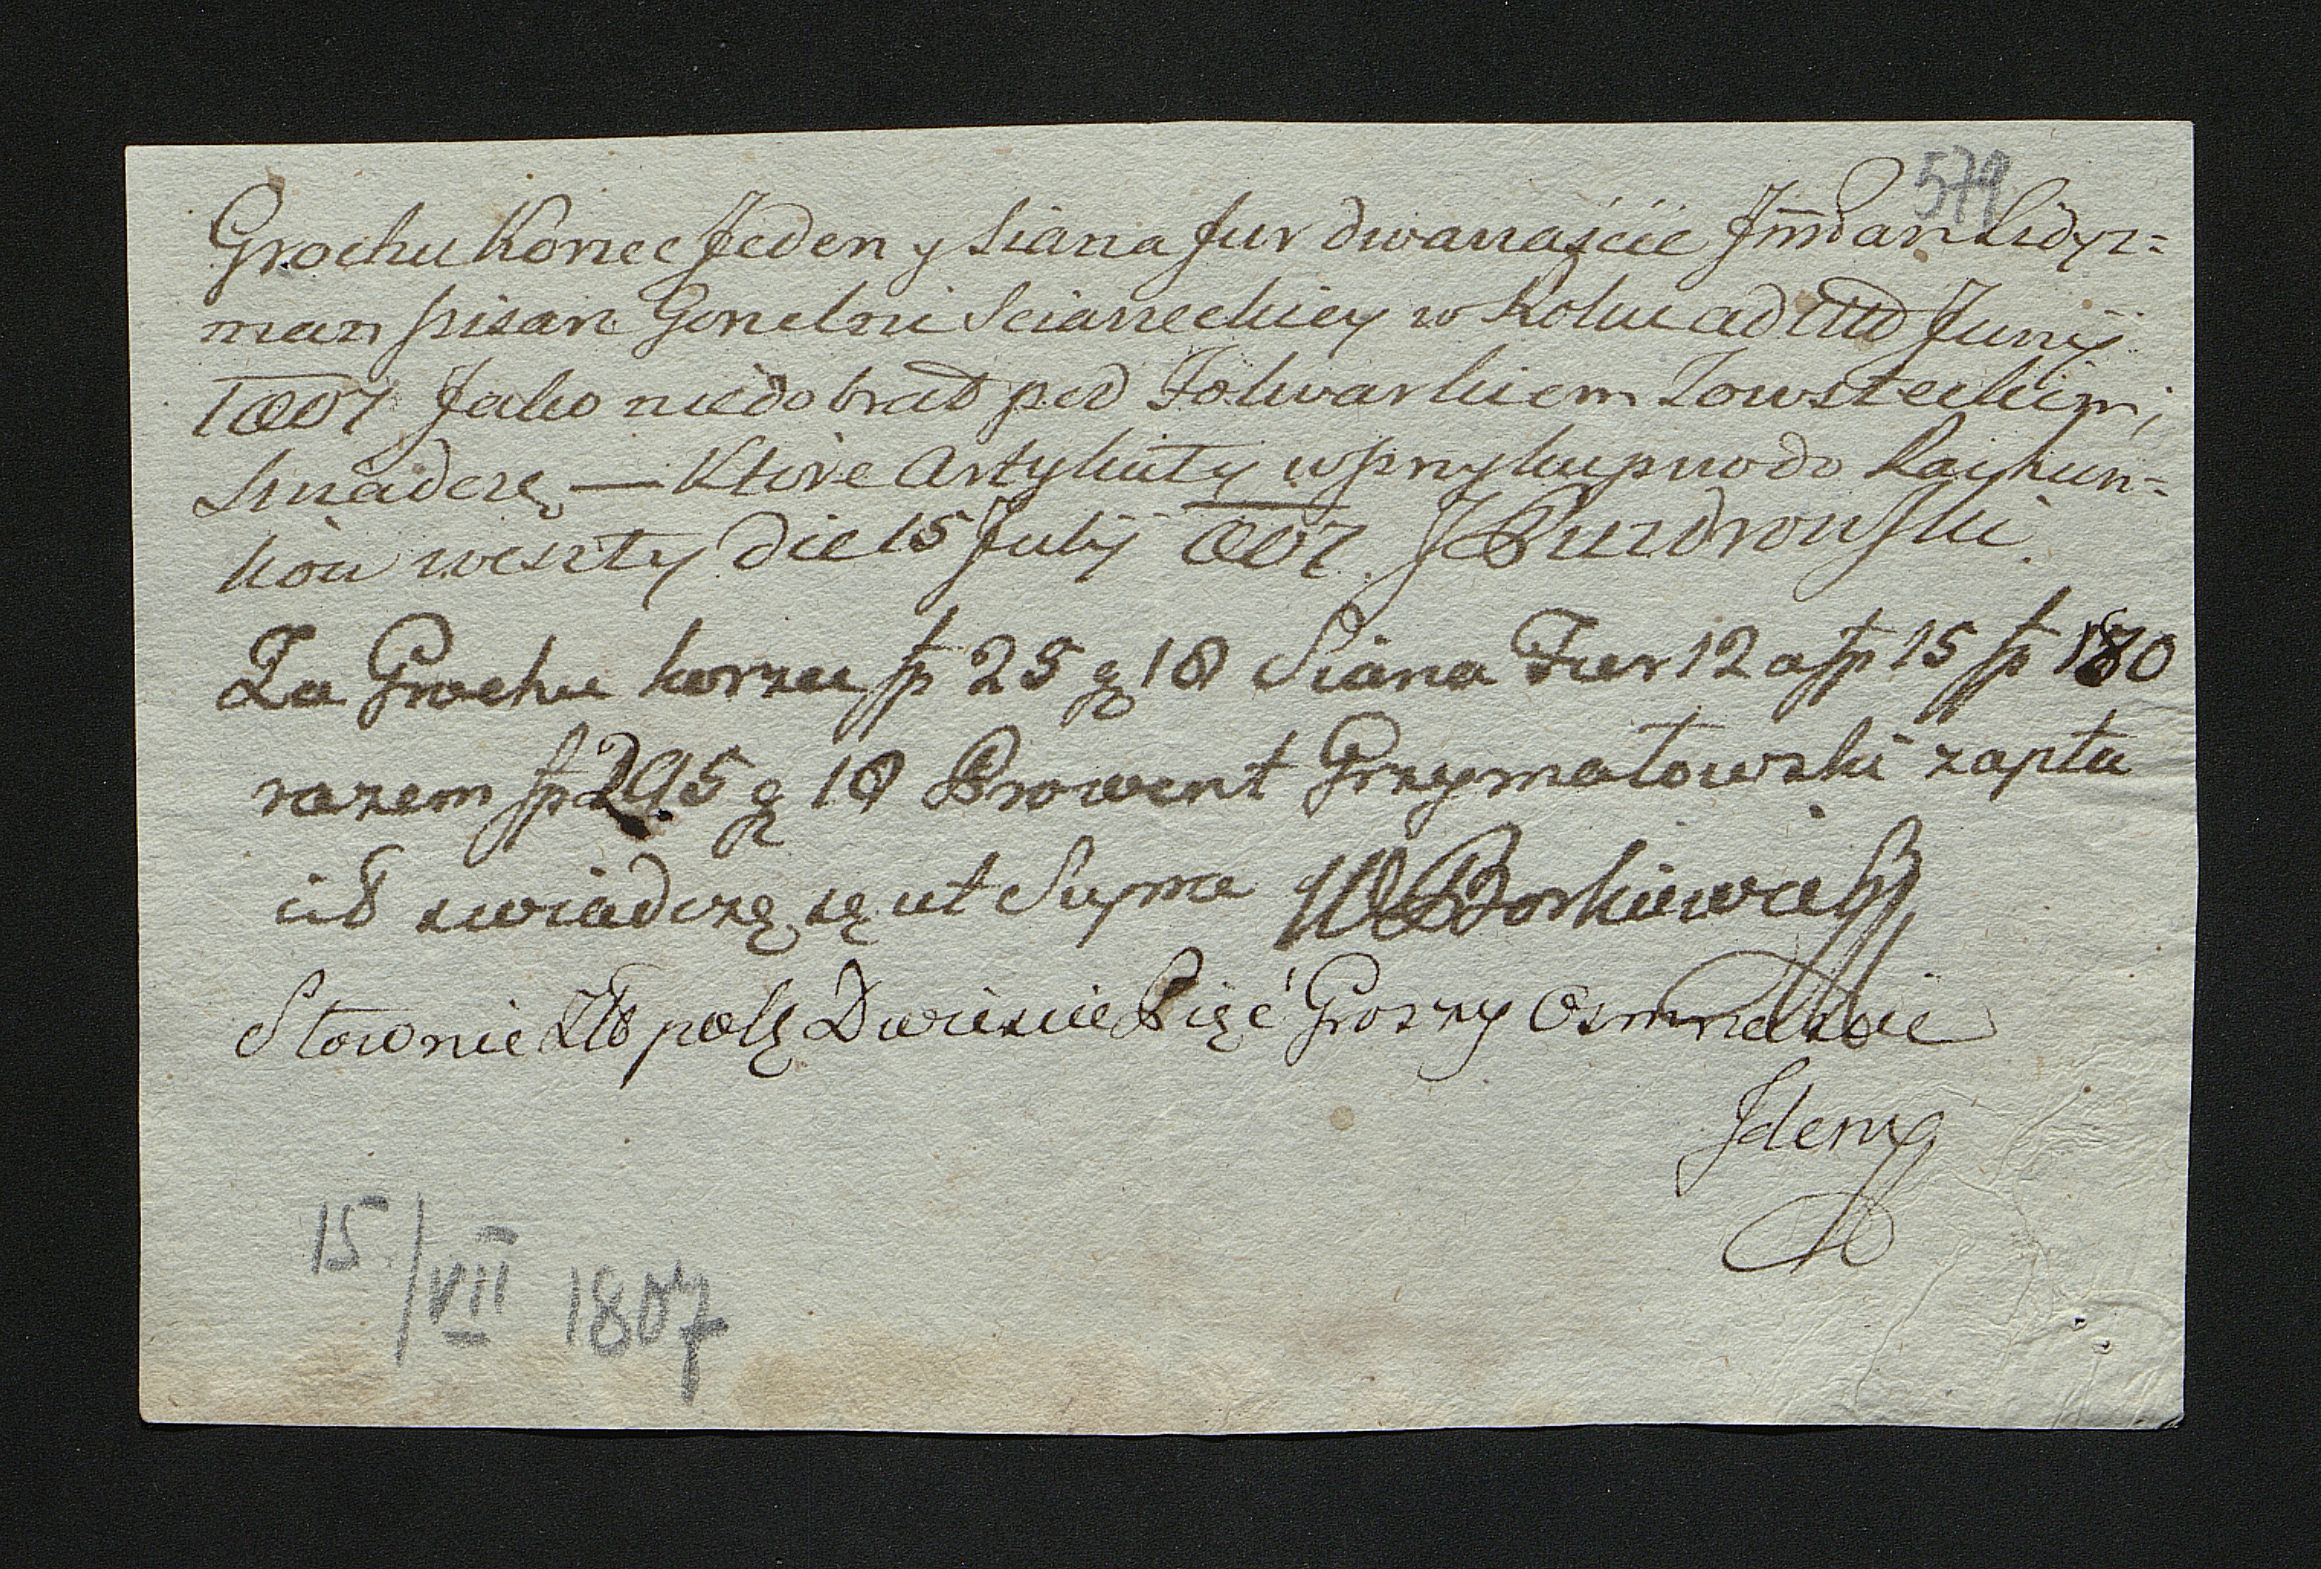 579
Grochu Korzec Jeden y siana fur dwanaście JmPan Lidyz=
man pisarz Gorzelni Scianeckiey w Roku ad Ultd Junÿ
1807 Jako niedobrał pod Folwarkiem Towsteckim,
Smadczę, — Które Artykuły w przykupno do Rachun=
ków weszły die 15 Julÿ 807. J Buzdrowski
Za Grochu korzec fp 25 g 18 Siana Fur 12 a fp 15 fp 180
razem fp 205 g 18 Prowent Grzymałowski zapła
cił zwiadczę są ut Supma W Borkiewicz
Słownie Zło polę Dwiescie Pięć Groszy Osmnascie
Idem
15/VII 1807